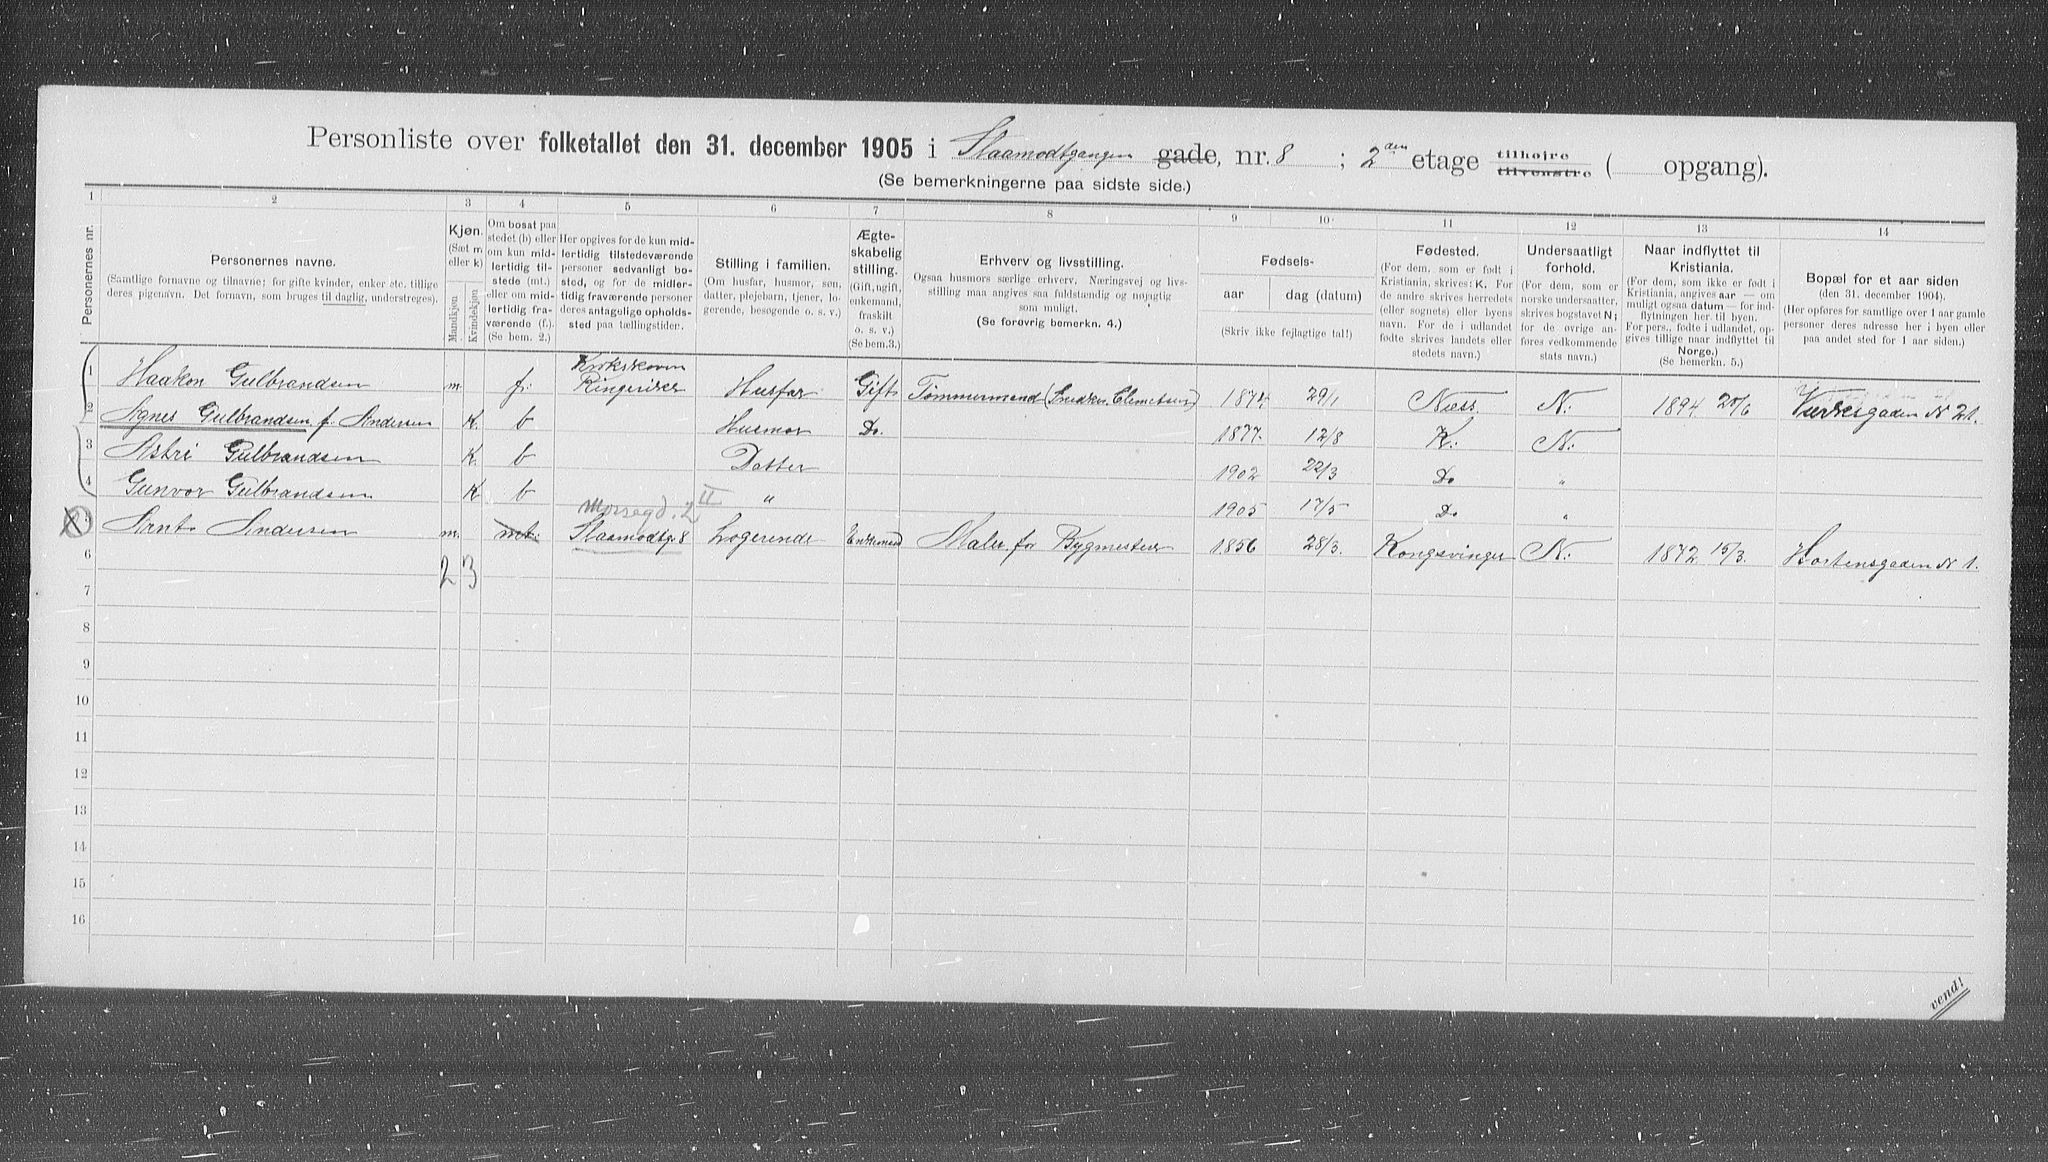 Personliste over folketallet den 31. december 1905 i Slaamodtgangen gade, nr. 8 ; 2den etage tilhøjre tilvenstre ( opgang).
(Se bemerkningerne paa sidste side.)
1 2 3 4 5 6 7 8 9 10 11 12 13 14
Personernes nr.
Personernes navne.
(Samtlige fornavne og tilnavne; for gifte kvinder, enker etc. tillige deres pigenavn. Det fornavn, som bruges til daglig, understreges).
Kjøn.
(Sæt m eller k)
Mandkjøn
Kvindekjøn
Om bosat paa stedet (b) eller om kun midlertidig tilstede (mt.) eller om midlertidig fraværende (f.). (Se bem. 2.)
Her opgives for de kun midlertidig tilstedeværende personer sedvanligt bosted, og for de midlertidig fraværende personer deres antagelige opholdssted paa tællingstiden.
Stilling i familien.
(Om husfar, husmor, søn, datter, plejebarn, tjener, logerende, besøgende o. s. v.)
Ægteskabelig stilling.
(Gift, ugift, enkemand, fraskilt o. s. v.)
(Se bem. 3.)
Erhverv og livsstilling.
Ogsaa husmors særlige erhverv. Næringsvej og livsstilling maa angives saa fuldstændig og nøjagtig som muligt.
(Se forøvrig bemerkn. 4.)
Fødsels-
aar dag (datum)
(Skriv ikke fejlagtige tal!)
Fødested.
(For dem, som er født i Kristiania, skrives: K. For de andre skrives herredets (eller sognets) eller byens navn. For de i udlandet fødte skrives landets eller stedets navn.)
Undersaatligt forhold.
(For dem, som er norske undersaatter, skrives bogstavet N; for de øvrige anføres vedkommende stats navn.)
Naar indflyttet til Kristiania.
(For dem, som ikke er født i Kristiania, angives aar — om muligt ogsaa datum — for indflytningen her til byen. For pers., fødte i udlandet, opgives tillige naar indflyttet til Norge.)
(Se bemerkn. 5.)
Bopæl for et aar siden
(den 31. december 1904).
(Her opføres for samtlige over 1 aar gamle personer deres adresse her i byen eller paa andet sted for 1 aar siden.)
1 Haakon Gulbrandsen m. f. Krokskoven Ringeriker Husfar Gift Tømmermand (Snedker Clemetsen) 1874 29/1 Næss N: 1894 20/6 Verksgaden N 21.
2 Agnes Gulbrandsen f. Andersen K. b Husmor Do. 1877. 12/8 K: N:
3 Astri Gulbrandsen K. b Datter 1902 22/3 Do "
4 Gunvor Gulbrandsen K b " 1905 17/5 Do "
Mossegd. 2 II
5 Arnt Andersen m. mt. Slaamodtg 8 Logerende Enkemand Maler for Bygmester 1856 28/3. Kongsvinger N: 1872 15/3. Hortensgaden N 1.
6
2 3
7
8
9
10
11
12
13
14
15
16
vend!